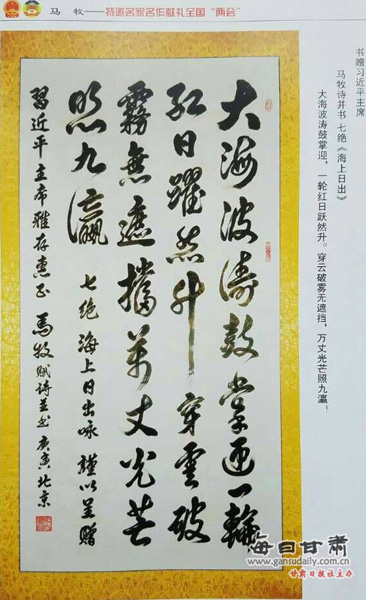 马 牧——特邀名家名作献礼全国“两会”
书赠习近平主席
马牧诗并书 七绝《海上日出》
大海波涛鼓掌迎，一轮红日跃然升。穿云破雾无遮挡，万丈光芒照九瀛！
大海波涛鼓掌迎一轮
红日躍然升穿雲破
霧無遮擋萬丈光芒
照九瀛
七绝 海上日出咏 謹以呈贈
習近平主席雅存惠正 馬牧賦诗并书 於北京
每日甘肃
www.gansudaily.com.cn
甘肃日报社主办